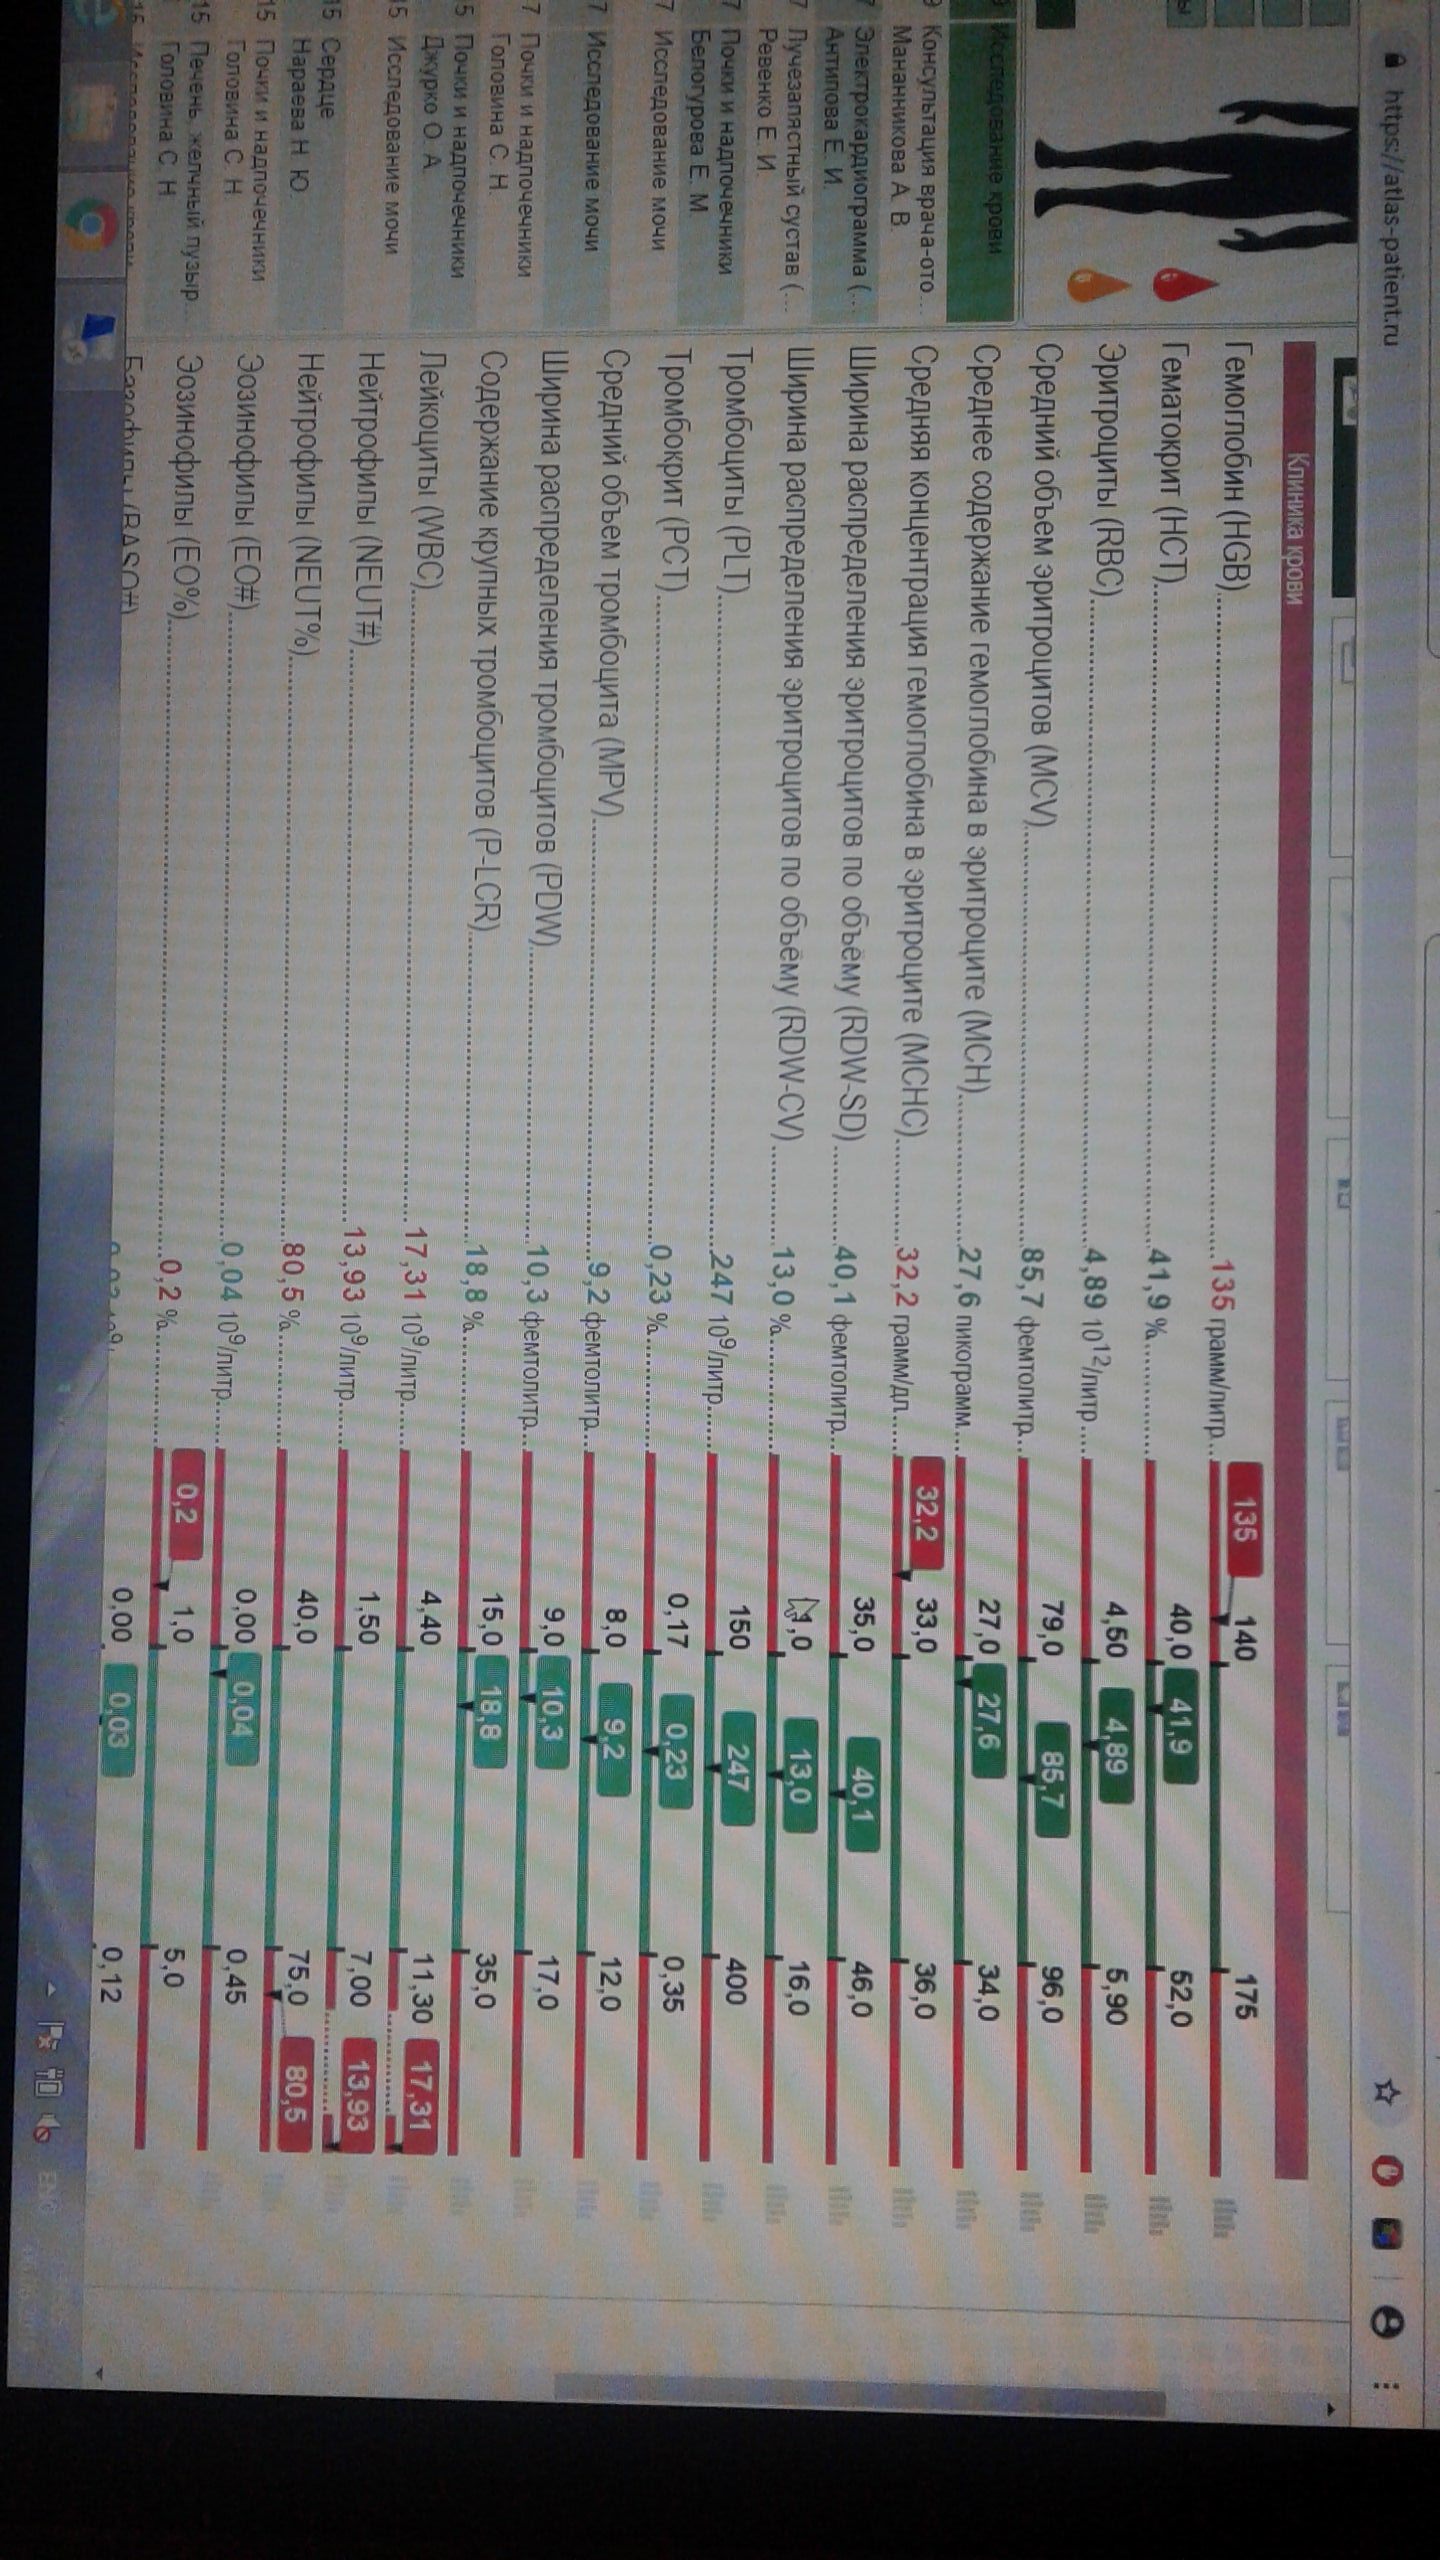 https://atlas-patient.ru
Клиника крови
Гемоглобин (HGB) 135 грамм/литр 135 140 175
Гематокрит (HCT) 41,9 % 40,0 41,9 52,0
Эритроциты (RBC) 4,89 10^12/литр 4,50 4,89 5,90
Средний объем эритроцитов (MCV) 85,7 фемтолитр 79,0 85,7 96,0
Среднее содержание гемоглобина в эритроците (MCH) 27,6 пикограмм 27,0 27,6 34,0
Средняя концентрация гемоглобина в эритроците (MCHC) 32,2 грамм/дл 32,2 33,0 36,0
Ширина распределения эритроцитов по объёму (RDW-SD) 40,1 фемтолитр 35,0 40,1 46,0
Ширина распределения эритроцитов по объёму (RDW-CV) 13,0 % ,0 13,0 16,0
Тромбоциты (PLT) 247 10^9/литр 150 247 400
Тромбокрит (PCT) 0,23 % 0,17 0,23 0,35
Средний объем тромбоцита (MPV) 9,2 фемтолитр 8,0 9,2 12,0
Ширина распределения тромбоцитов (PDW) 10,3 фемтолитр 9,0 10,3 17,0
Содержание крупных тромбоцитов (P-LCR) 18,8 % 15,0 18,8 35,0
Лейкоциты (WBC) 17,31 10^9/литр 4,40 11,30 17,31
Нейтрофилы (NEUT#) 13,93 10^9/литр 1,50 7,00 13,93
Нейтрофилы (NEUT%) 80,5 % 40,0 75,0 80,5
Эозинофилы (EO#) 0,04 10^9/литр 0,00 0,04 0,45
Эозинофилы (EO%) 0,2 % 0,2 1,0 5,0
Базофилы (BASO#) 0,00 0,03 0,12
Исследование крови
9 Консультация врача-ото...
Мананникова А. В.
7 Электрокардиограмма (...
Антипова Е. И.
7 Лучезапястный сустав (...
Ревенко Е. И.
7 Почки и надпочечники
Белогурова Е. М.
7 Исследование мочи
7 Исследование мочи
7 Почки и надпочечники
Головина С. Н.
5 Почки и надпочечники
Джурко О. А.
15 Исследование мочи
15 Сердце
Нараева Н. Ю.
15 Почки и надпочечники
Головина С. Н.
15 Печень, желчный пузыр...
Головина С. Н.